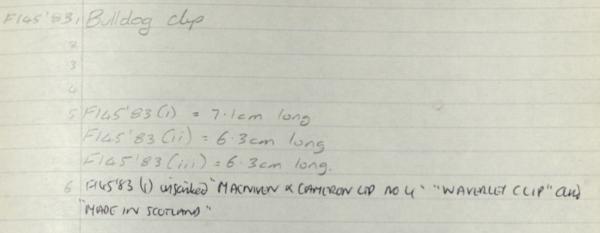 F145'83, 1 Bulldog clip
2
3
4
5 F145'83 (i) = 7.1cm long
F145'83 (ii) = 6.3cm long
F145'83 (iii) = 6.3cm long.
6 F145'83 (i) inscribed "MACNIVEN & CAMERON LTD NO 4" "WAVERLEY CLIP" and
"MADE IN SCOTLAND"